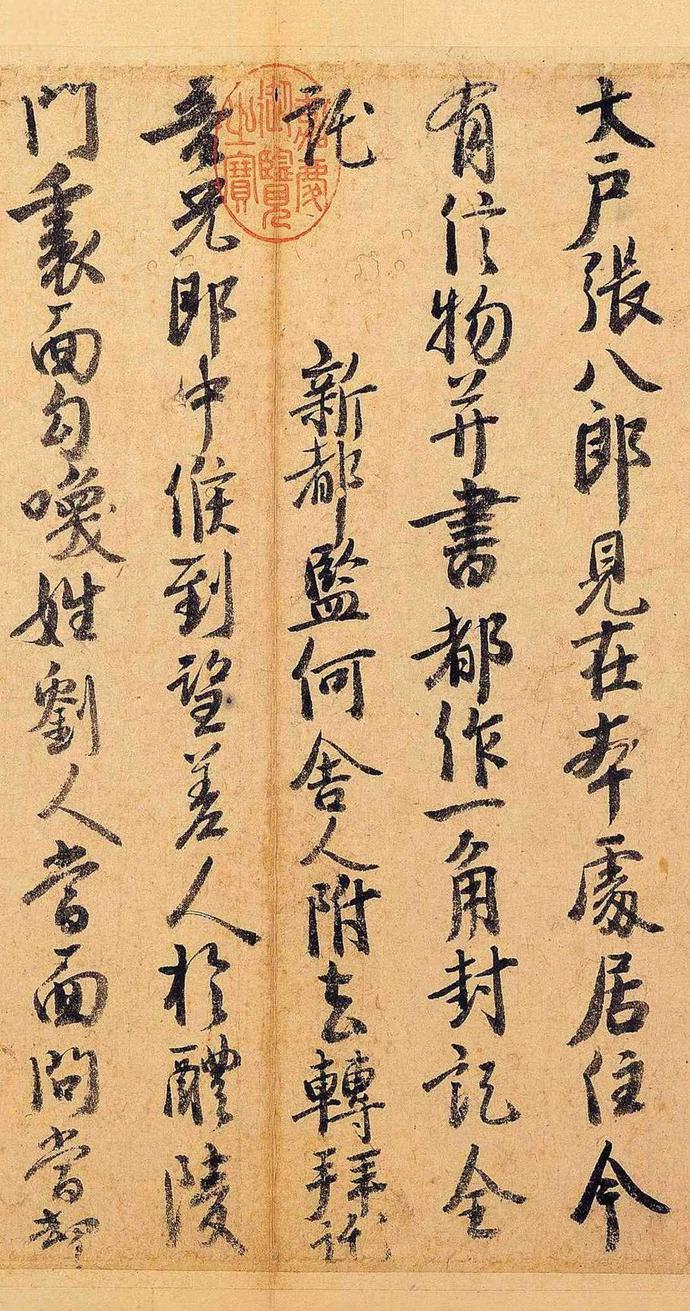 大户張八郎見在本處居住今
有信物并書都作一角封記全
託 新都監何舍人附去轉拜託
吾兄郎中候到望差人於醴陵
門裏面勾喚姓劉人當面問當却
嘉慶御覽之寶